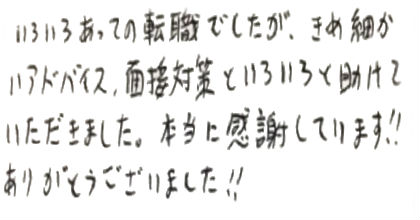 いろいろあっての転職でしたが、きめ細か
いアドバイス、面接対策といろいろと助けて
いただきました。本当に感謝しています!!
ありがとうございました!!